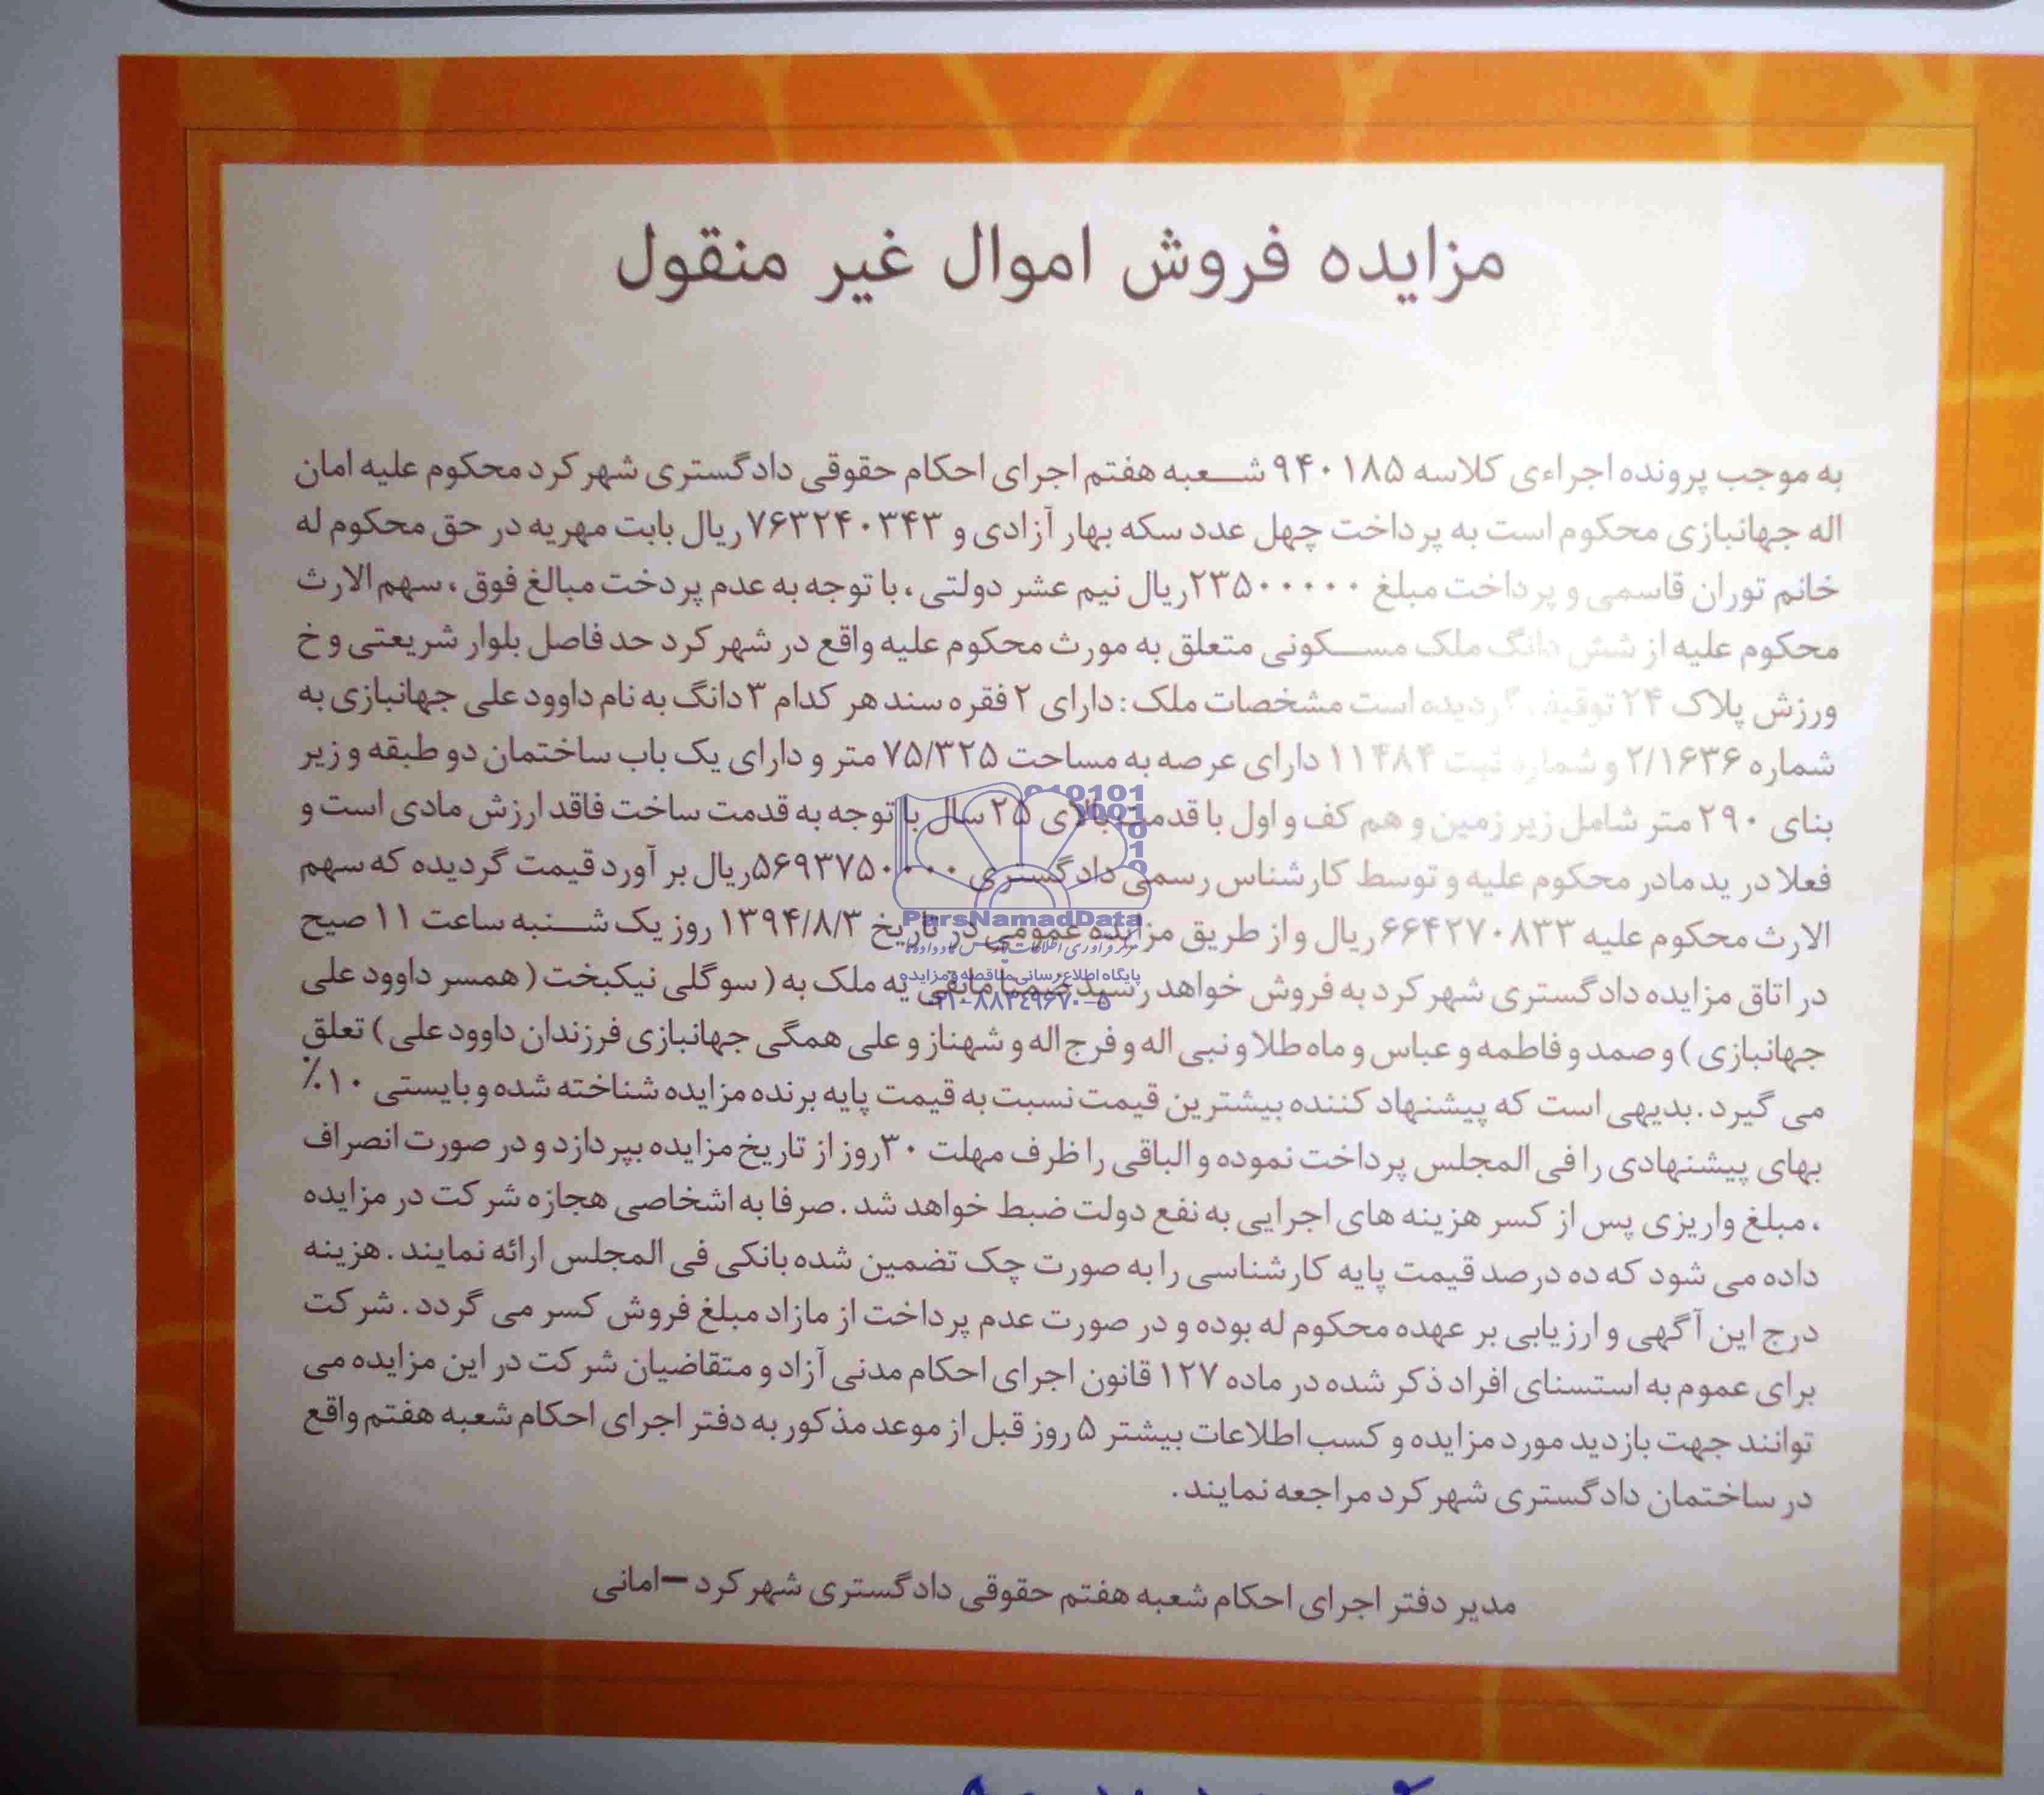 مزایده فروش اموال غیر منقول
به موجب پرونده اجراءی کلاسه ۹۴۰۱۸۵ شعبه هفتم اجرای احکام حقوقی دادگستری شهر کرد محکوم علیه امان
اله جهانبازی محکوم است به پرداخت چهل عدد سکه بهار آزادی و ۷۶۳۲۴۰۳۴۳ ریال بابت مهریه در حق محکوم له
خانم توران قاسمی و پرداخت مبلغ ۲۳۵۰۰۰۰۰ ریال نیم عشر دولتی ، با توجه به عدم پردخت مبالغ فوق ، سهم الارث
محکوم علیه از شش دانگ ملک مسکونی متعلق به مورث محکوم علیه واقع در شهر کرد حد فاصل بلوار شریعتی و خ
ورزش پلاک ۲۴ توقیف گردیده است مشخصات ملک : دارای ۲ فقره سند هر کدام ۳ دانگ به نام داوود علی جهانبازی به
شماره ۲/۱۶۳۶ و شماره ثبت ۱۱۴۸۴ دارای عرصه به مساحت ۷۵/۳۲۵ متر و دارای یک باب ساختمان دو طبقه و زیر
بنای ۲۹۰ متر شامل زیر زمین و هم کف و اول با قدمت بالای ۲۵ سال با توجه به قدمت ساخت فاقد ارزش مادی است و
فعلا در ید مادر محکوم علیه و توسط کارشناس رسمی دادگستری ۵۶۹۳۷۵۰۰۰۰ ریال بر آورد قیمت گردیده که سهم
الارث محکوم علیه ۶۶۴۲۷۰۸۳۳ ریال و از طریق مزایده عمومی در تاریخ ۱۳۹۴/۸/۳ روز یک شنبه ساعت ۱۱ صیح
در اتاق مزایده دادگستری شهر کرد به فروش خواهد رسید ضمنا مابقی یه ملک به ( سوگلی نیکبخت ( همسر داوود علی
جهانبازی ) و صمد و فاطمه و عباس و ماه طلا و نبی اله و فرج اله و شهناز و علی همگی جهانبازی فرزندان داوود علی ) تعلق
می گیرد . بدیهی است که پیشنهاد کننده بیشترین قیمت نسبت به قیمت پایه برنده مزایده شناخته شده و بایستی ۱۰٪
بهای پیشنهادی را فی المجلس پرداخت نموده و الباقی را ظرف مهلت ۳۰ روز از تاریخ مزایده بپردازد و در صورت انصراف
، مبلغ واریزی پس از کسر هزینه های اجرایی به نفع دولت ضبط خواهد شد . صرفا به اشخاصی هجازه شرکت در مزایده
داده می شود که ده درصد قیمت پایه کارشناسی را به صورت چک تضمین شده بانکی فی المجلس ارائه نمایند . هزینه
درج این آگهی و ارزیابی بر عهده محکوم له بوده و در صورت عدم پرداخت از مازاد مبلغ فروش کسر می گردد . شرکت
برای عموم به استسنای افراد ذکر شده در ماده ۱۲۷ قانون اجرای احکام مدنی آزاد و متقاضیان شرکت در این مزایده می
توانند جهت بازدید مورد مزایده و کسب اطلاعات بیشتر ۵ روز قبل از موعد مذکور به دفتر اجرای احکام شعبه هفتم واقع
در ساختمان دادگستری شهر کرد مراجعه نمایند .
مدیر دفتر اجرای احکام شعبه هفتم حقوقی دادگستری شهر کرد – امانی
ParsNamadData
پایگاه اطلاع رسانی مناقصه و مزایده
۰۲۱-۸۸۳۴۹۶۷۰-۵